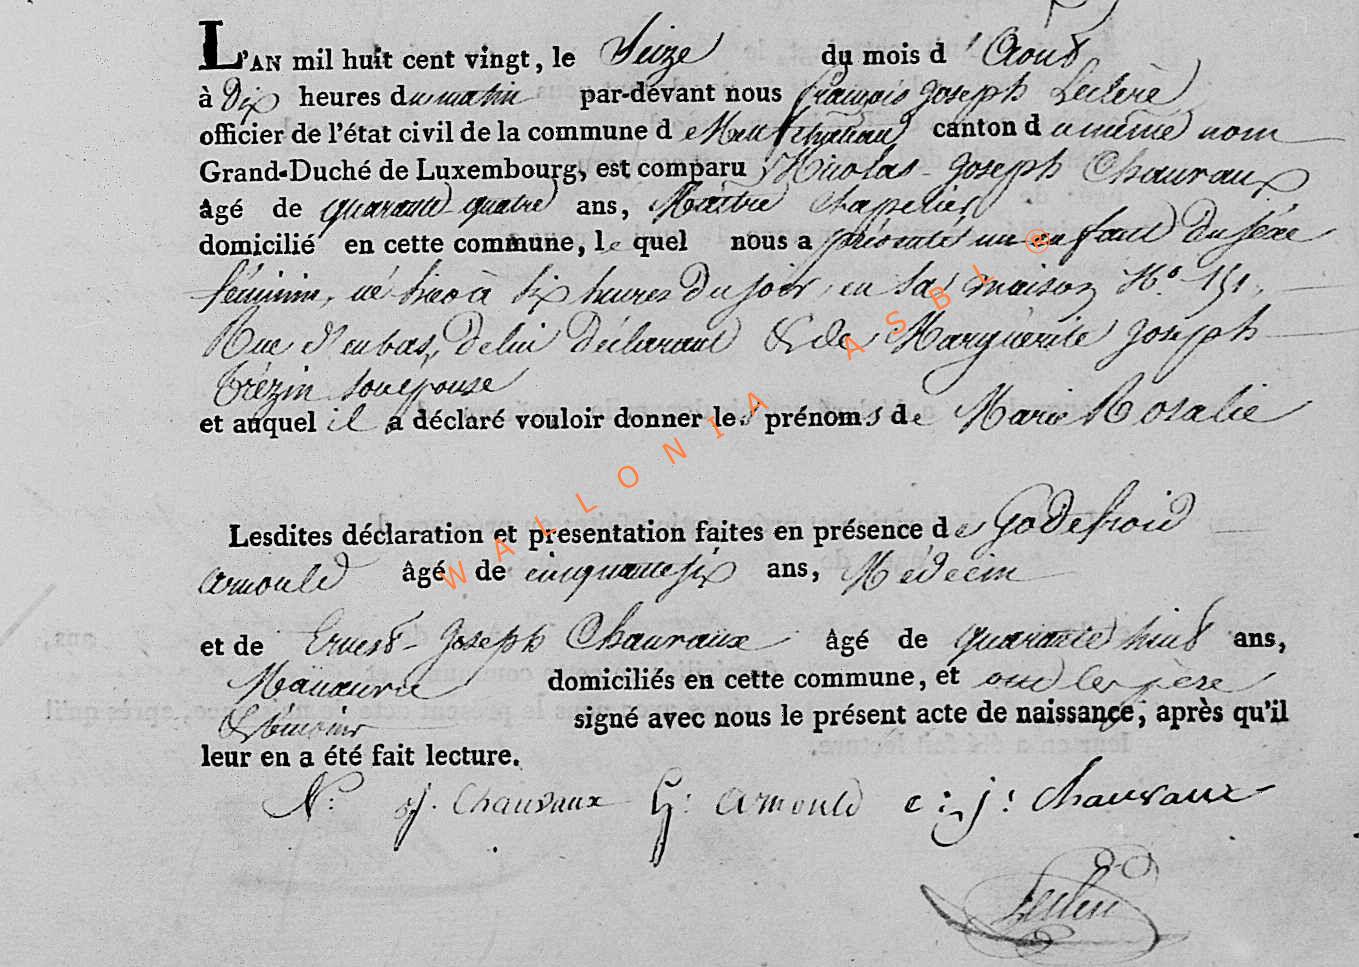 L'AN mil huit cent vingt, le Seize du mois d'Aout
à Dix heures du matin par-devant nous françois Joseph Leclere
officier de l'état civil de la commune de Neufchateau canton du même nom
Grand-Duché de Luxembourg, est comparu Nicolas Joseph Chauvaux
âgé de quarante quatre ans, Maître Chapelier
domicilié en cette commune, le quel nous a présenté un enfant du séxe
féminin, né hier à six heures du soir, en sa maison No. 151,
Rue d'enbas, de lui déclarant & de Marguerite Joseph
Trézin son épouse
et auquel il a déclaré vouloir donner les prénoms de Marie Rosalie
Lesdites déclaration et presentation faites en présence de Godefroid
Arnould âgé de cinquante six ans, Médecin
et de Ernest Joseph Chauvaux âgé de quarante huit ans,
domiciliés en cette commune, et ont les père
& témoins signé avec nous le présent acte de naissance, après qu'il
leur en a été fait lecture.
N: j. Chauvaux G: Arnould e: j: Chauvaux
Leclere
WALLONIA ASBL ®